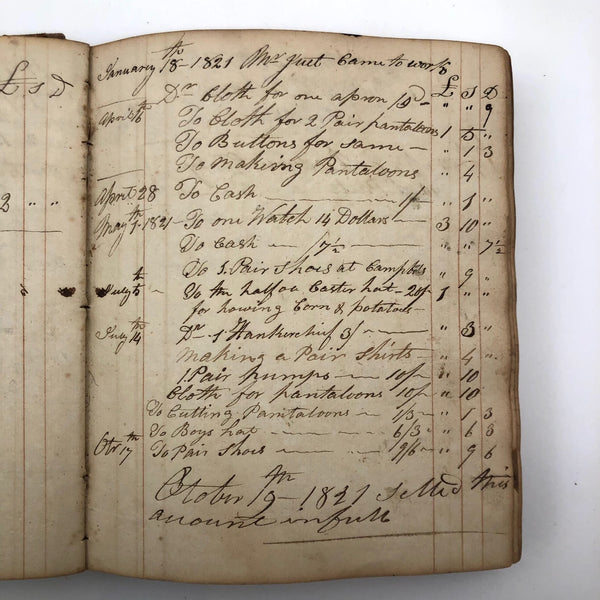 £ S D
2 " "
January 18th - 1821 Mr Juet Came to work
£ S D
Dr Cloth for one apron /9d - " " 9
April 6th To Cloth for 2 Pair pantaloons 1 5 "
To Buttons for same - " 1 3
To making Pantaloons " 4
April 28 To Cash 1/- " 1 "
May 7th - 1821 - To one Watch 14 Dollars - 3 10 "
To Cash - /7½ " " 7½
To 1 Pair Shoes at Campbels " 9 "
July 5th - To the half of a Caster hat - 20/- 1 " "
for howing Corn & potatoes -
July 14th Dr - 1 Hankerchief 3/ - " 3 "
making a Pair Shirts - " 4 "
1 Pair pumps - 10/- " 10
Cloth for pantaloons 10/- " 10
To Cutting Pantaloons - 1/3 - " 1 3
To Boys hat - 6/3 - " 6 3
Otr 17th To Pair Shoes - 9/6 - " 9 6
October 19th - 1821 settled this
account in full